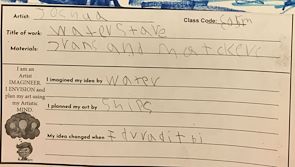 Artist: Joshua Class Code:
Title of work: waterstave
Materials: and
I am an
Artist
IMAGINEER.
I ENVISION and
plan my art using
my Artistic
MIND.
I imagined my idea by water
I planned my art by Ships
My idea changed when I